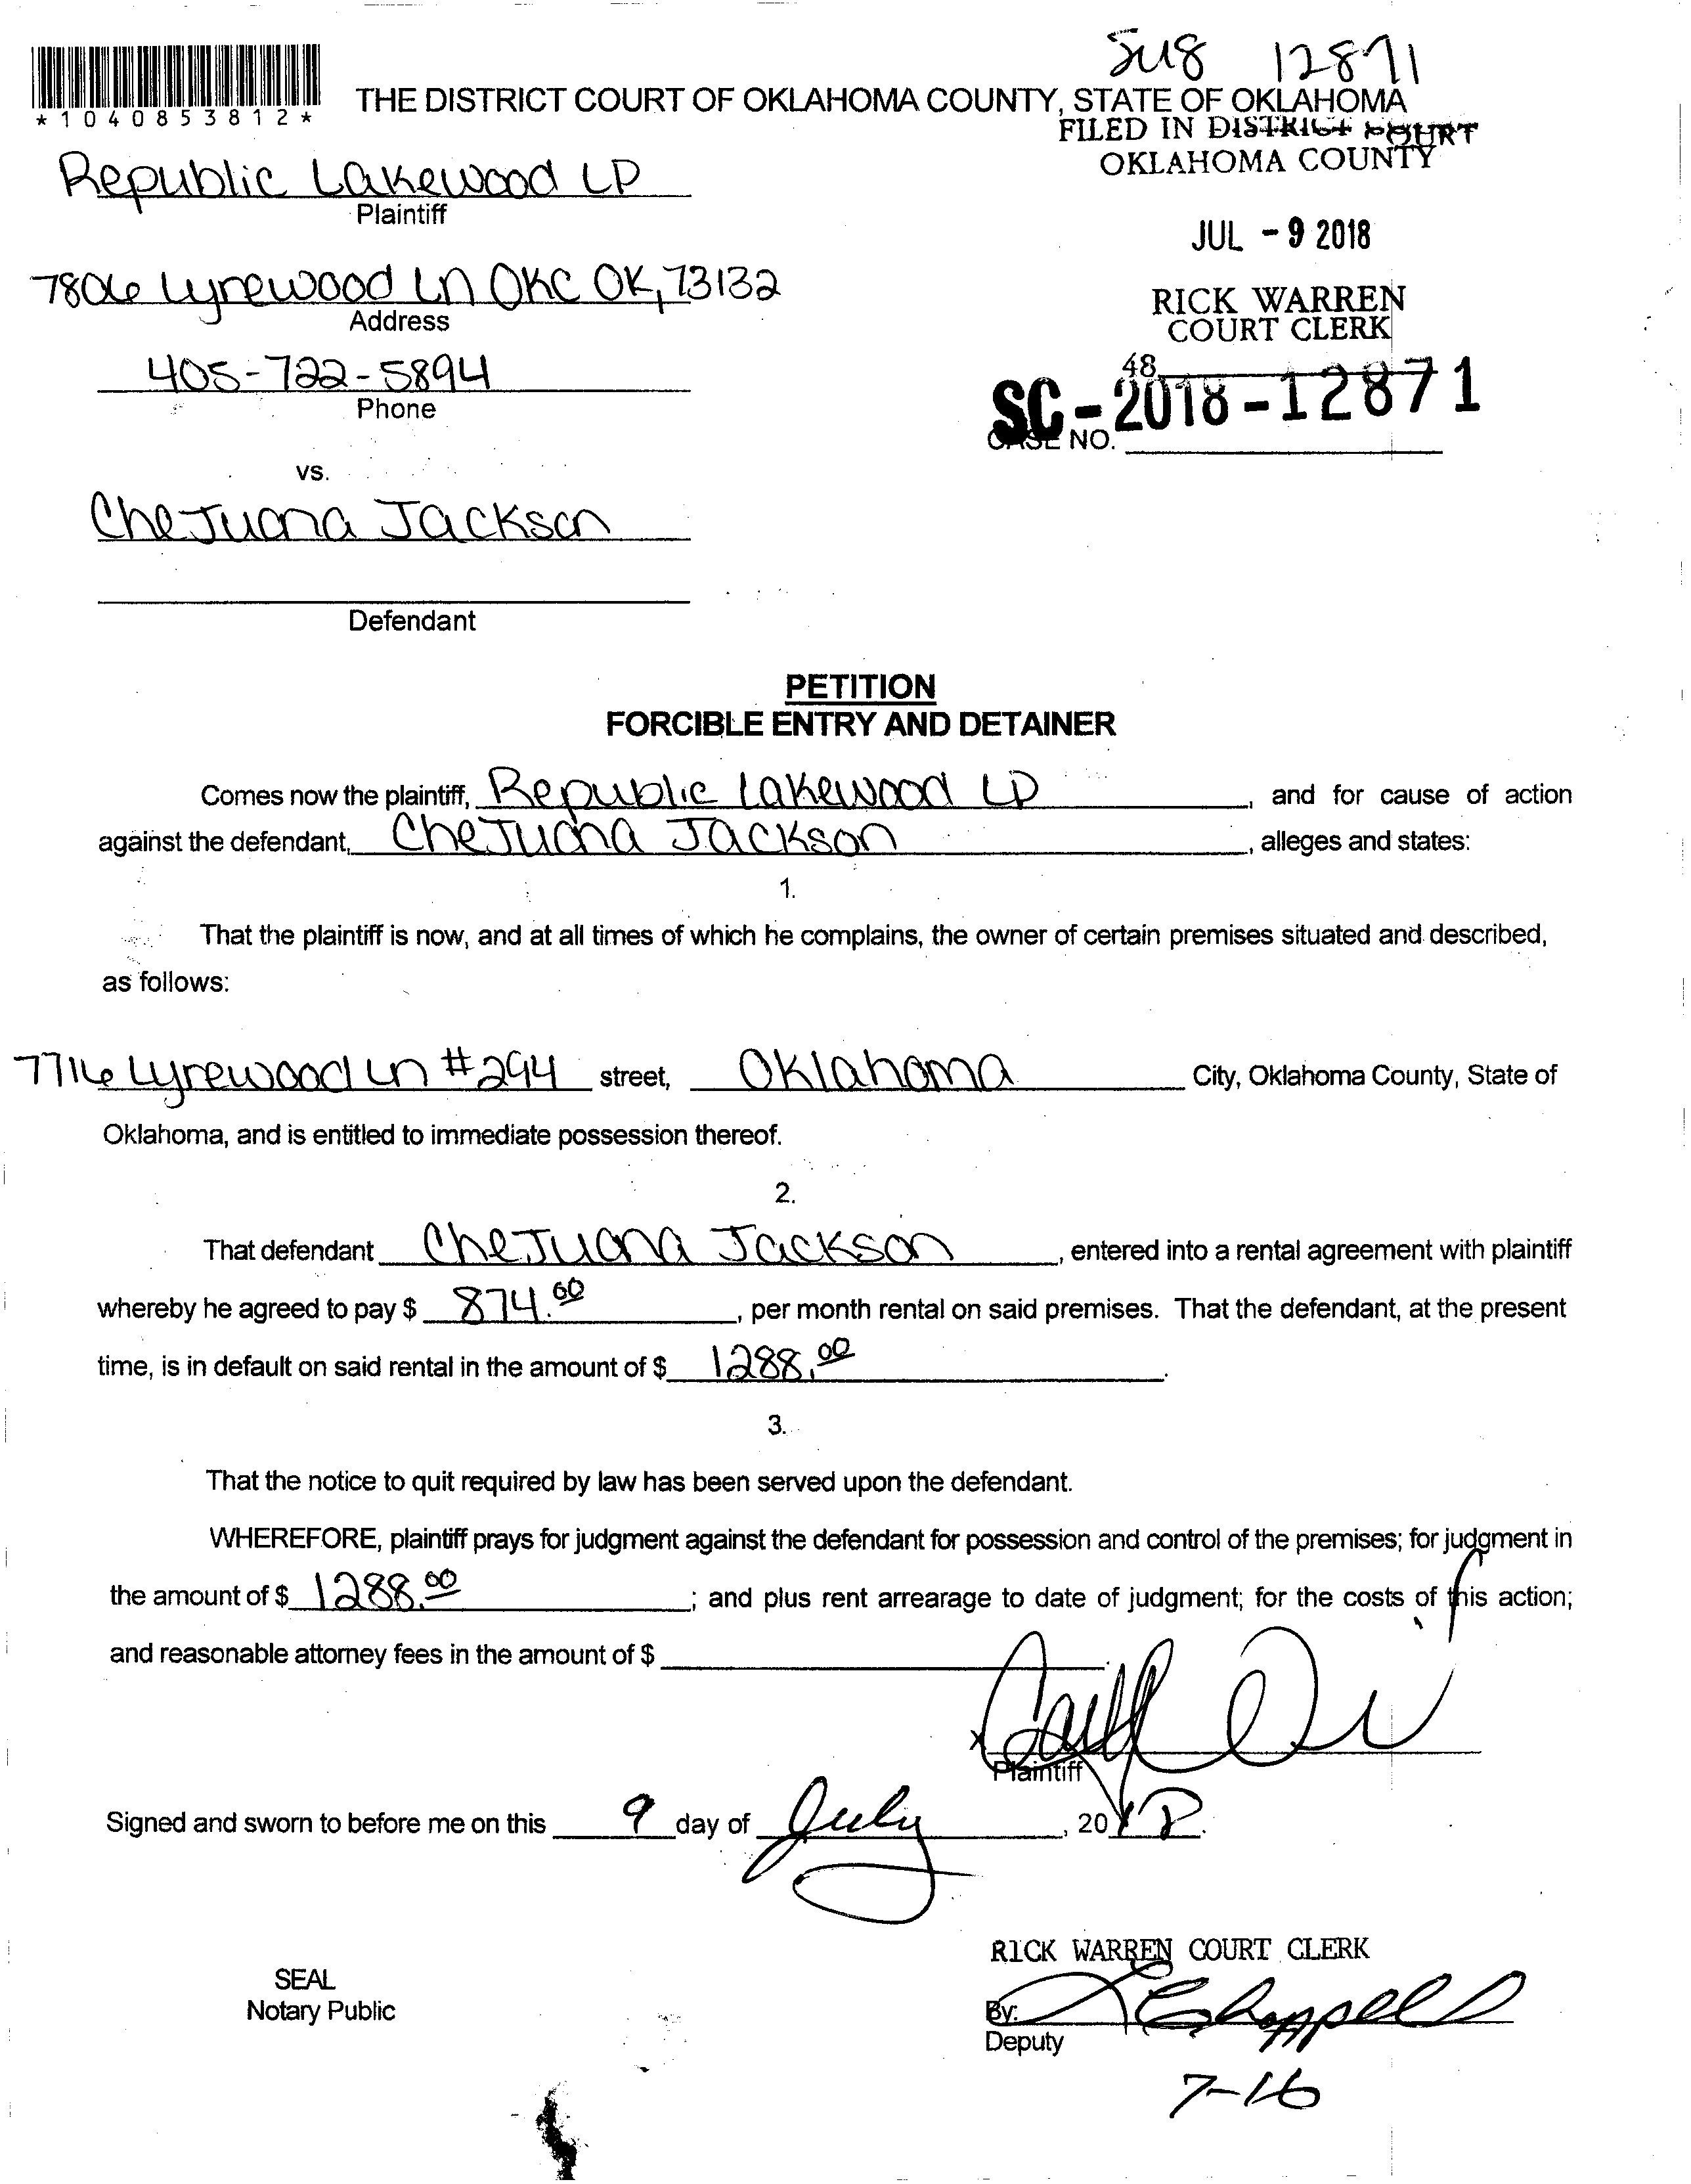 SC18 12871
*1040853812*
THE DISTRICT COURT OF OKLAHOMA COUNTY, STATE OF OKLAHOMA
FILED IN DISTRICT COURT
OKLAHOMA COUNTY
Republic Lakewood LP
Plaintiff
JUL - 9 2018
7806 Lyrewood Ln OKC OK, 73132
Address
RICK WARREN
COURT CLERK
405-722-5894
Phone
48
SC-2018-12871
CASE NO.
vs.
CheJuana Jackson
Defendant
PETITION
FORCIBLE ENTRY AND DETAINER
Comes now the plaintiff, Republic Lakewood LP, and for cause of action
against the defendant, CheJuana Jackson, alleges and states:
1.
That the plaintiff is now, and at all times of which he complains, the owner of certain premises situated and described,
as follows:
7716 Lyrewood Ln #294 street, Oklahoma City, Oklahoma County, State of
Oklahoma, and is entitled to immediate possession thereof.
2.
That defendant CheJuana Jackson, entered into a rental agreement with plaintiff
whereby he agreed to pay $ 874.00, per month rental on said premises. That the defendant, at the present
time, is in default on said rental in the amount of $ 1288.00.
3.
That the notice to quit required by law has been served upon the defendant.
WHEREFORE, plaintiff prays for judgment against the defendant for possession and control of the premises; for judgment in
the amount of $ 1288.00; and plus rent arrearage to date of judgment; for the costs of this action;
and reasonable attorney fees in the amount of $
X
Plaintiff
Signed and sworn to before me on this 9 day of July, 2018.
RICK WARREN COURT CLERK
SEAL
Notary Public
By: Chappell
Deputy
7-16